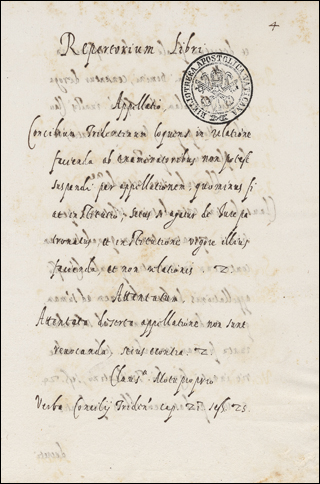 4
Repertorium Libri
BIBLIOTHECA APOSTOLICA VATICANA
Appellatio
Concilium Tridentinum loquens in relatione
facienda ab examinatoribus non potest
suspendi per appellationem quominus fi
at
de Iure pa
tronatus et in vigore illius
facienda et non relationis
Attentatum
Attentata deserta appellatione non sunt
revocanda, secus econtra
Motu proprio
Verba Concilij Triden. cap. sess. 25.